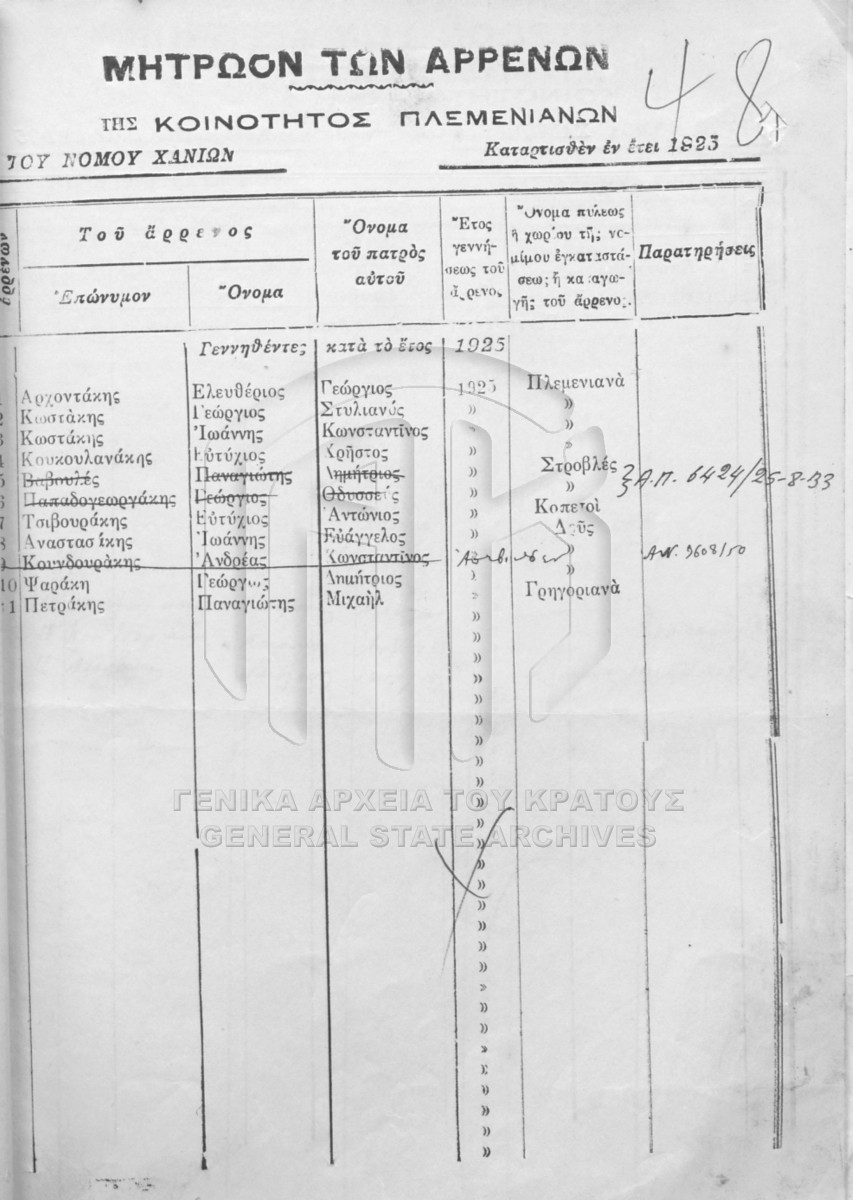 48
ΜΗΤΡΩΟΝ ΤΩΝ ΑΡΡΕΝΩΝ
ΤΗΣ ΚΟΙΝΟΤΗΤΟΣ ΠΛΕΜΕΝΙΑΝΩΝ
ΤΟΥ ΝΟΜΟΥ ΧΑΝΙΩΝ Καταρτισθὲν ἐν ἔτει 1925
Τοῦ ἄρρενος
Ἐπώνυμον Ὄνομα
Ὄνομα
τοῦ πατρὸς
αὐτοῦ
Ἔτος
γεννή-
σεως τοῦ
ἄρρενος
Ὄνομα πόλεως
ἢ χωρίου τῆς νο-
μίμου ἐγκαταστά-
σεως ἢ καταγω-
γῆς τοῦ ἄρρενος.
Παρατηρήσεις
Γεννηθέντες κατὰ τὸ ἔτος 1925
1 Ἀρχοντάκης Ἐλευθέριος Γεώργιος 1925 Πλεμενιανὰ
2 Κωστάκης Γεώργιος Στυλιανός » »
3 Κωστάκης Ἰωάννης Κωνσταντῖνος » »
4 Κουκουλανάκης Εὐτύχιος Χρῆστος » »
5 Βαβουλές Παναγιώτης Δημήτριος » Στροβλές } Α.Π. 6424/25-8-33
6 Παπαδογεωργάκης Γεώργιος Ὀδυσσεύς » »
7 Τσιβουράκης Εὐτύχιος Ἀντώνιος » Κοπετοὶ
8 Ἀναστασάκης Ἰωάννης Εὐάγγελος » Δρῦς
9 Κουνδουράκης Ἀνδρέας Κωνσταντῖνος »
10 Ψαράκη Γεώργιος Δημήτριος » »
11 Πετράκης Παναγιώτης Μιχαὴλ » Γρηγοριανὰ
ΓΕΝΙΚΑ ΑΡΧΕΙΑ ΤΟΥ ΚΡΑΤΟΥΣ
GENERAL STATE ARCHIVES